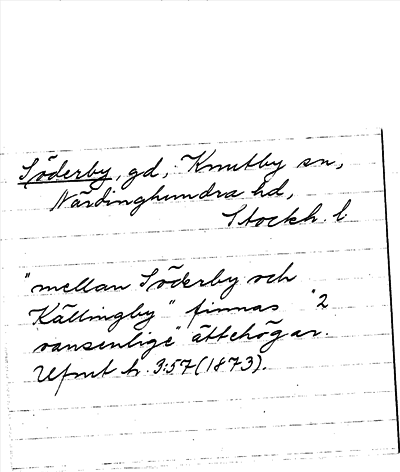 Söderby, gd, Knutby sn,
Närdinghundra hd,
Stockh. l
"mellan Söderby och
Källingby" finnas "2
vansenlige" ättehögar.
Ufmt h. 3:57 (1873).